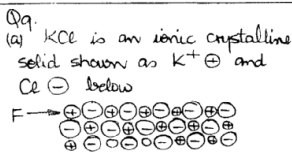 Q9.
(a) KCl is an ionic crystalline
solid shown as K⁺ ⊕ and
Cl ⊖ below
F → ⊕ ⊖ ⊕ ⊖ ⊕ ⊖ ⊕ ⊖ ⊕ ⊖
⊖ ⊕ ⊖ ⊕ ⊖ ⊕ ⊖ ⊕ ⊖ ⊕
⊕ ⊖ ○ ○ ⊕ ⊖ ⊕ ⊖ ⊕ ⊖